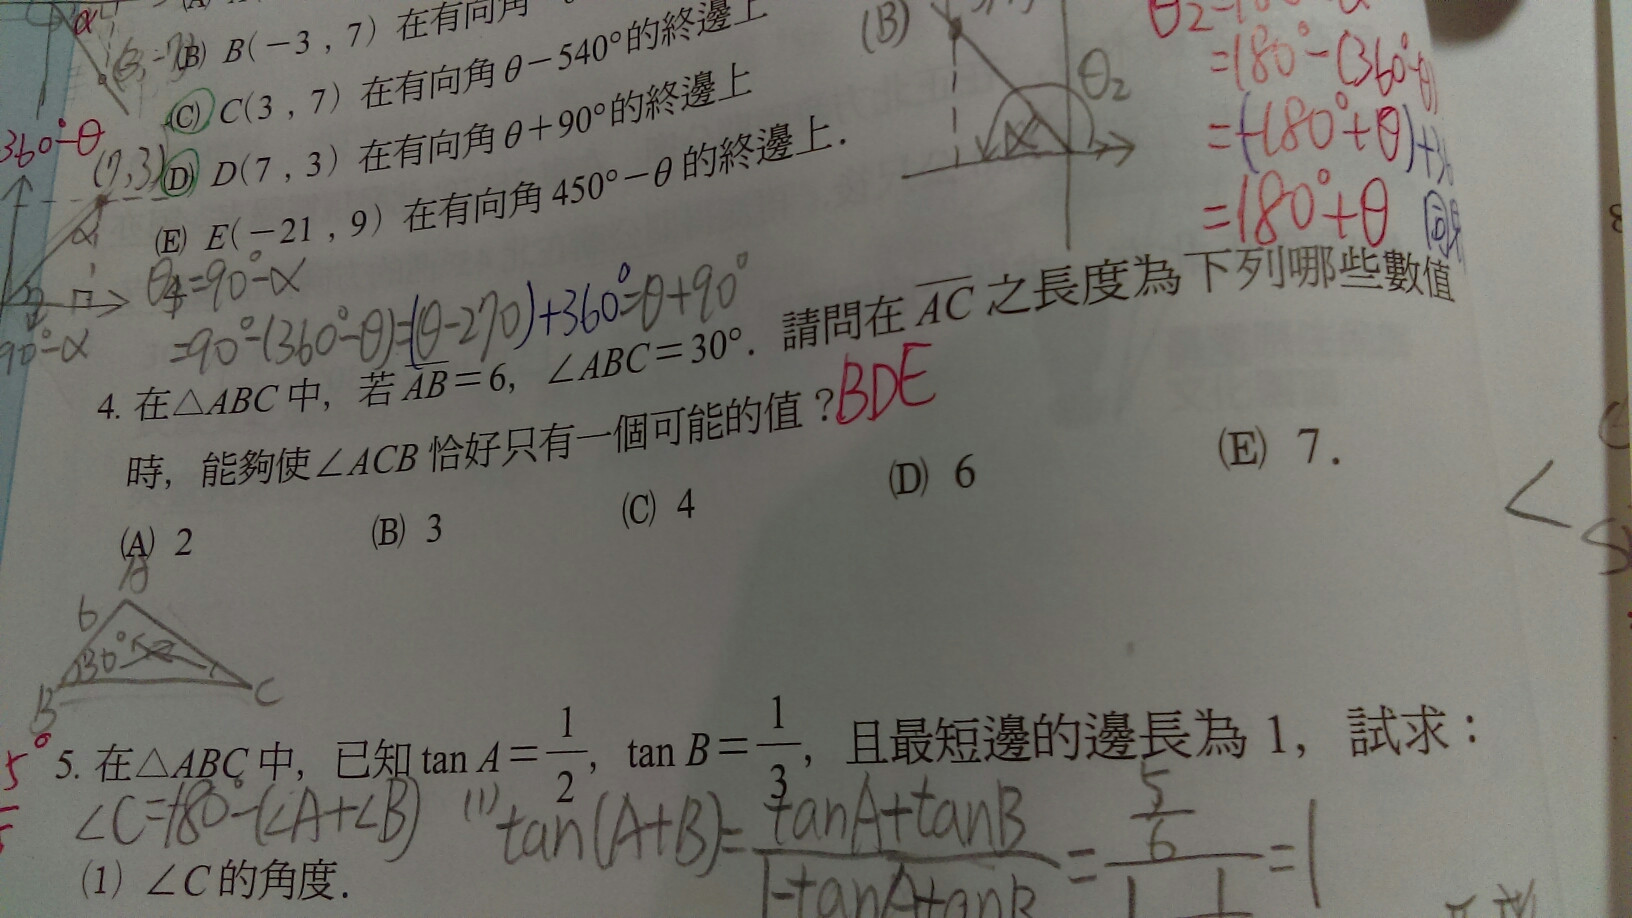 (B) B(−3 , 7) 在有向角
(C) C(3 , 7) 在有向角 θ−540°的終邊上
(D) D(7 , 3) 在有向角 θ+90°的終邊上
(E) E(−21 , 9) 在有向角 450°−θ 的終邊上.
α
360°−θ
(7,3)
α
90°−α
θ4=90°−α
=90°−(360°−θ)=(θ−270)+360°=θ+90°
(B)
θ2
α
=180°−(360°−θ)
=(−180°+θ)+36
=180°+θ 同界
4. 在△ABC 中, 若 AB=6, ∠ABC=30°. 請問在 AC 之長度為下列哪些數值
時, 能夠使∠ACB 恰好只有一個可能的值?BDE
(A) 2 (B) 3 (C) 4 (D) 6 (E) 7.
A
6
30°
B C
5. 在△ABC 中, 已知 tan A=1/2, tan B=1/3, 且最短邊的邊長為 1, 試求:
∠C=180°−(∠A+∠B) (1) tan(A+B)=
tanA+tanB
=
5/6
=1
(1) ∠C 的角度.